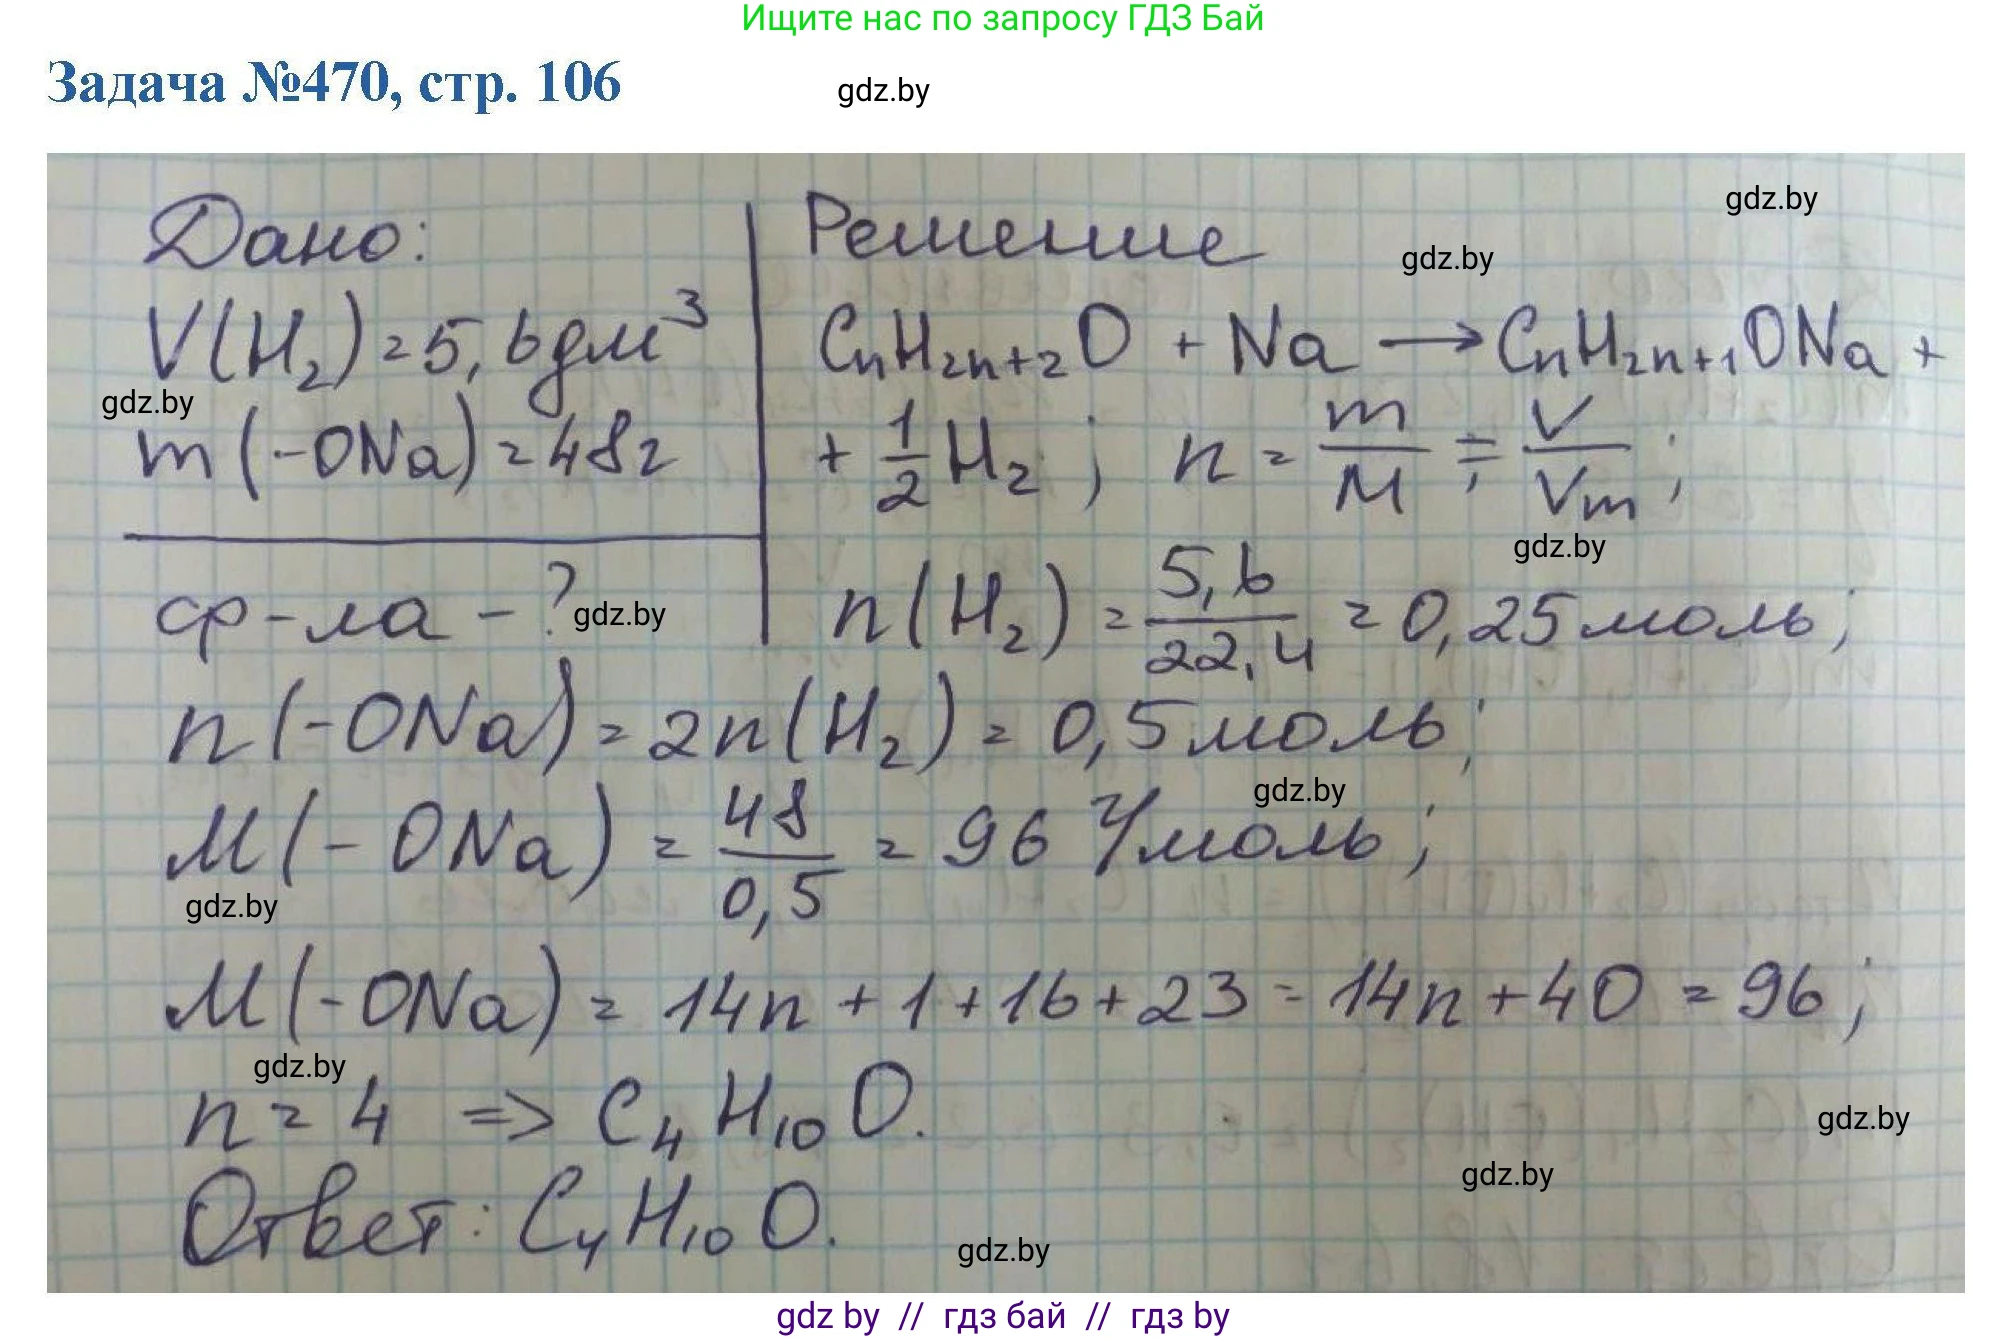 Ищите нас по запросу ГДЗ Бай
Задача №470, стр. 106
gdz.by
Дано:
V(H₂)=5,6дм³
m(-ONa)=48г
ср-ла - ?
Решение
CnH₂n₊₂O + Na → CnH₂n₊₁ONa +
+ 1/2 H₂; n = m/M ; = V/Vm ;
n(H₂) = 5,6/22,4 = 0,25моль;
n(-ONa) = 2n(H₂) = 0,5моль;
M(-ONa) = 48/0,5 = 96 г/моль;
M(-ONa) = 14n + 1 + 16 + 23 = 14n + 40 = 96;
n = 4 => C₄H₁₀O.
Ответ: C₄H₁₀O.
gdz.by
gdz.by
gdz.by
gdz.by
gdz.by
gdz.by
gdz.by
gdz.by
gdz.by
gdz.by
gdz.by
gdz by // гдз бай // гдз by